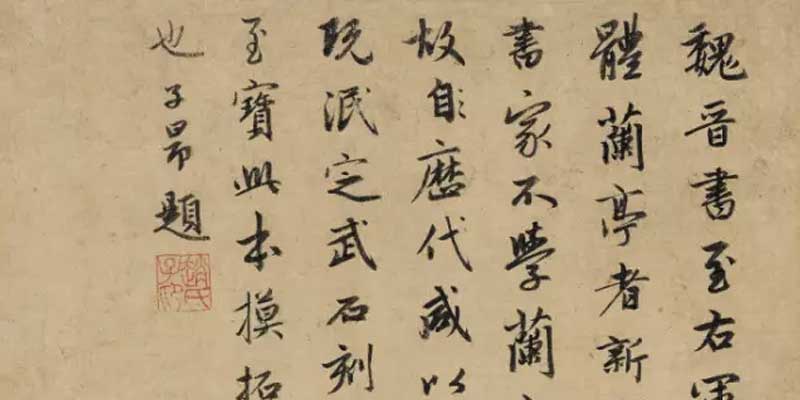 魏晉書至右軍
體蘭亭者新
書家不學蘭
故自歷代咸以
既泯定武石刻
至寶此本摸拓
也子昂題
趙氏子昂